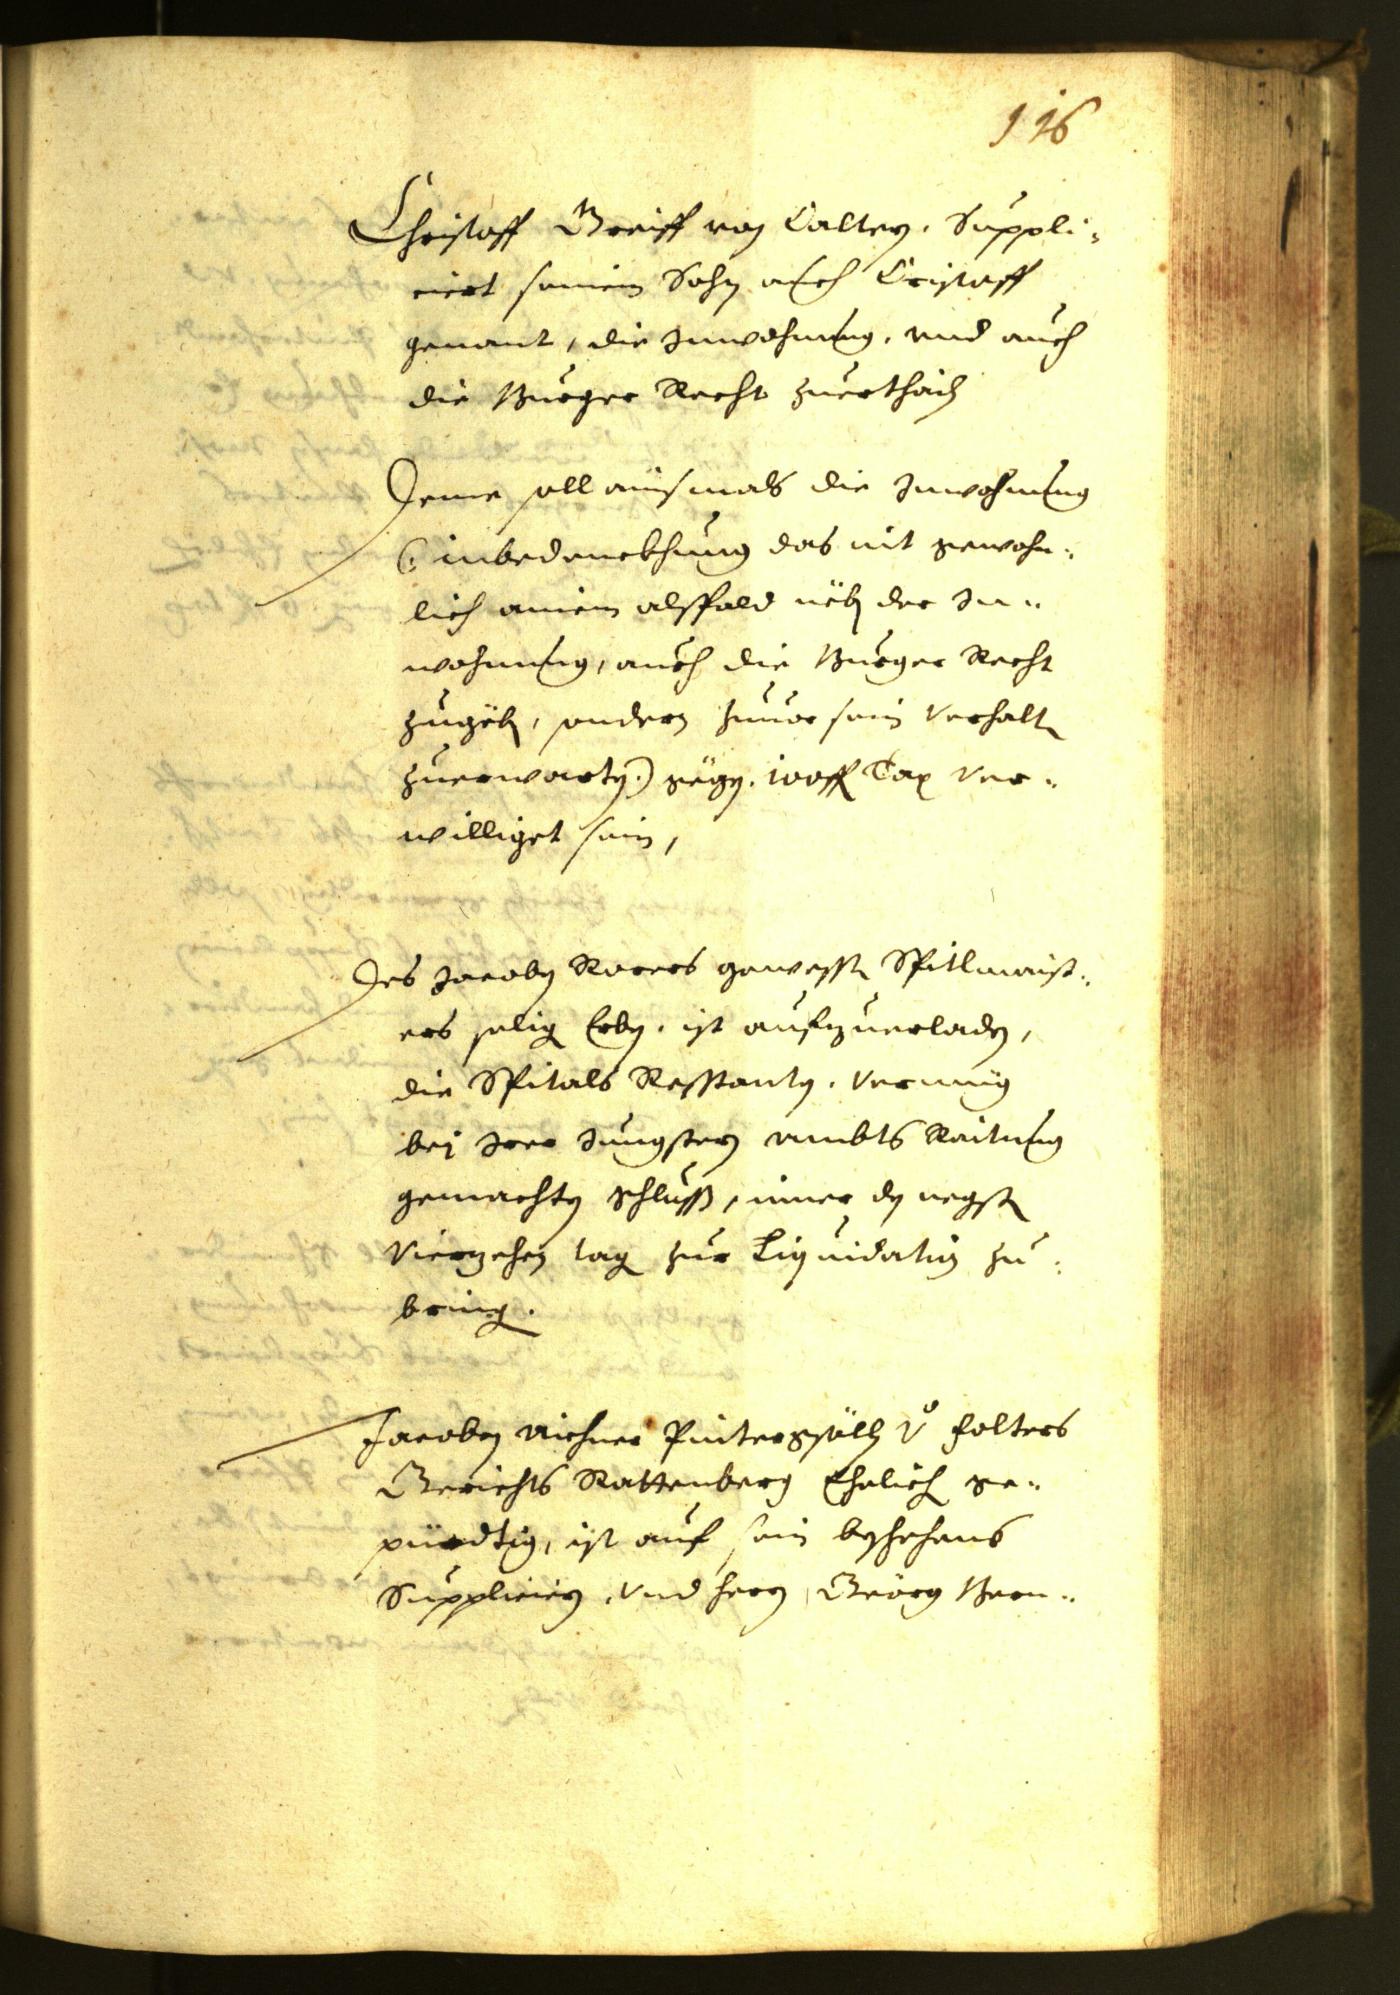 116
Christoff Greiff von Caltern. Suppli-
ciert seinem Sohn auch Cristoff
genant, die Inwohnung, und auch
die Burger Recht zuerthailn
Deme soll ainsmals die Inwohnung
(: inbedenckhung das nit gewohn-
lich ainem alspald nebn der In-
wohnung, auch die Burger Recht
zugebn, sondern zuuor sein Verhaltn
zuerwarten:) gegen. 100 fl Tax Ver-
williget sein,
Des Jacoben Rorers gewessten Spitlmaist-
ers selig Erben. ist aufzuerladen,
die Spitals Resstanten. Vermüg
bei Irer Jungsten ambts Raitung
gemachten Schluss, inner den negsten
Vierzehen tag zur Liquidation zu-
bringen.
Jacoben Aichner Pintergsölln Vo Folters
Gerichts Rattenberg Ehelich ge-
pürdtig, ist auf sein beschehens
Supplicirn. Vnd hern Geörg Bern-